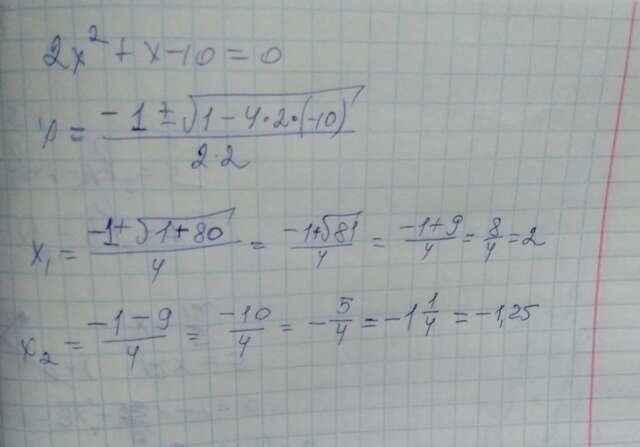 2x² + x - 10 = 0
D = (-1 ± √(1 - 4·2·(-10)))/(2·2)
x₁ = (-1+√(1+80))/4 = (-1+√81)/4 = (-1+9)/4 = 8/4 = 2
x₂ = (-1-9)/4 = (-10)/4 = -5/4 = -1 1/4 = -1,25